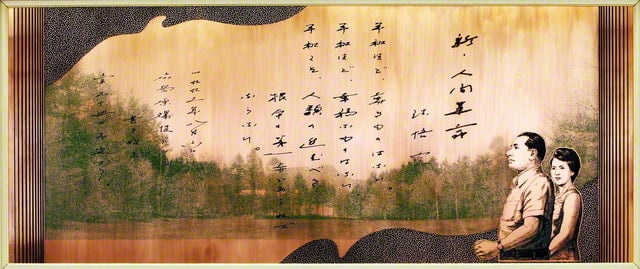 新・人間革命
法悟空
平和ほど、尊きものはない。
平和ほど、幸福なものはない。
平和こそ、人類の進むべき
根本の第一歩であらね
ばならない。
一九九三年八月六日